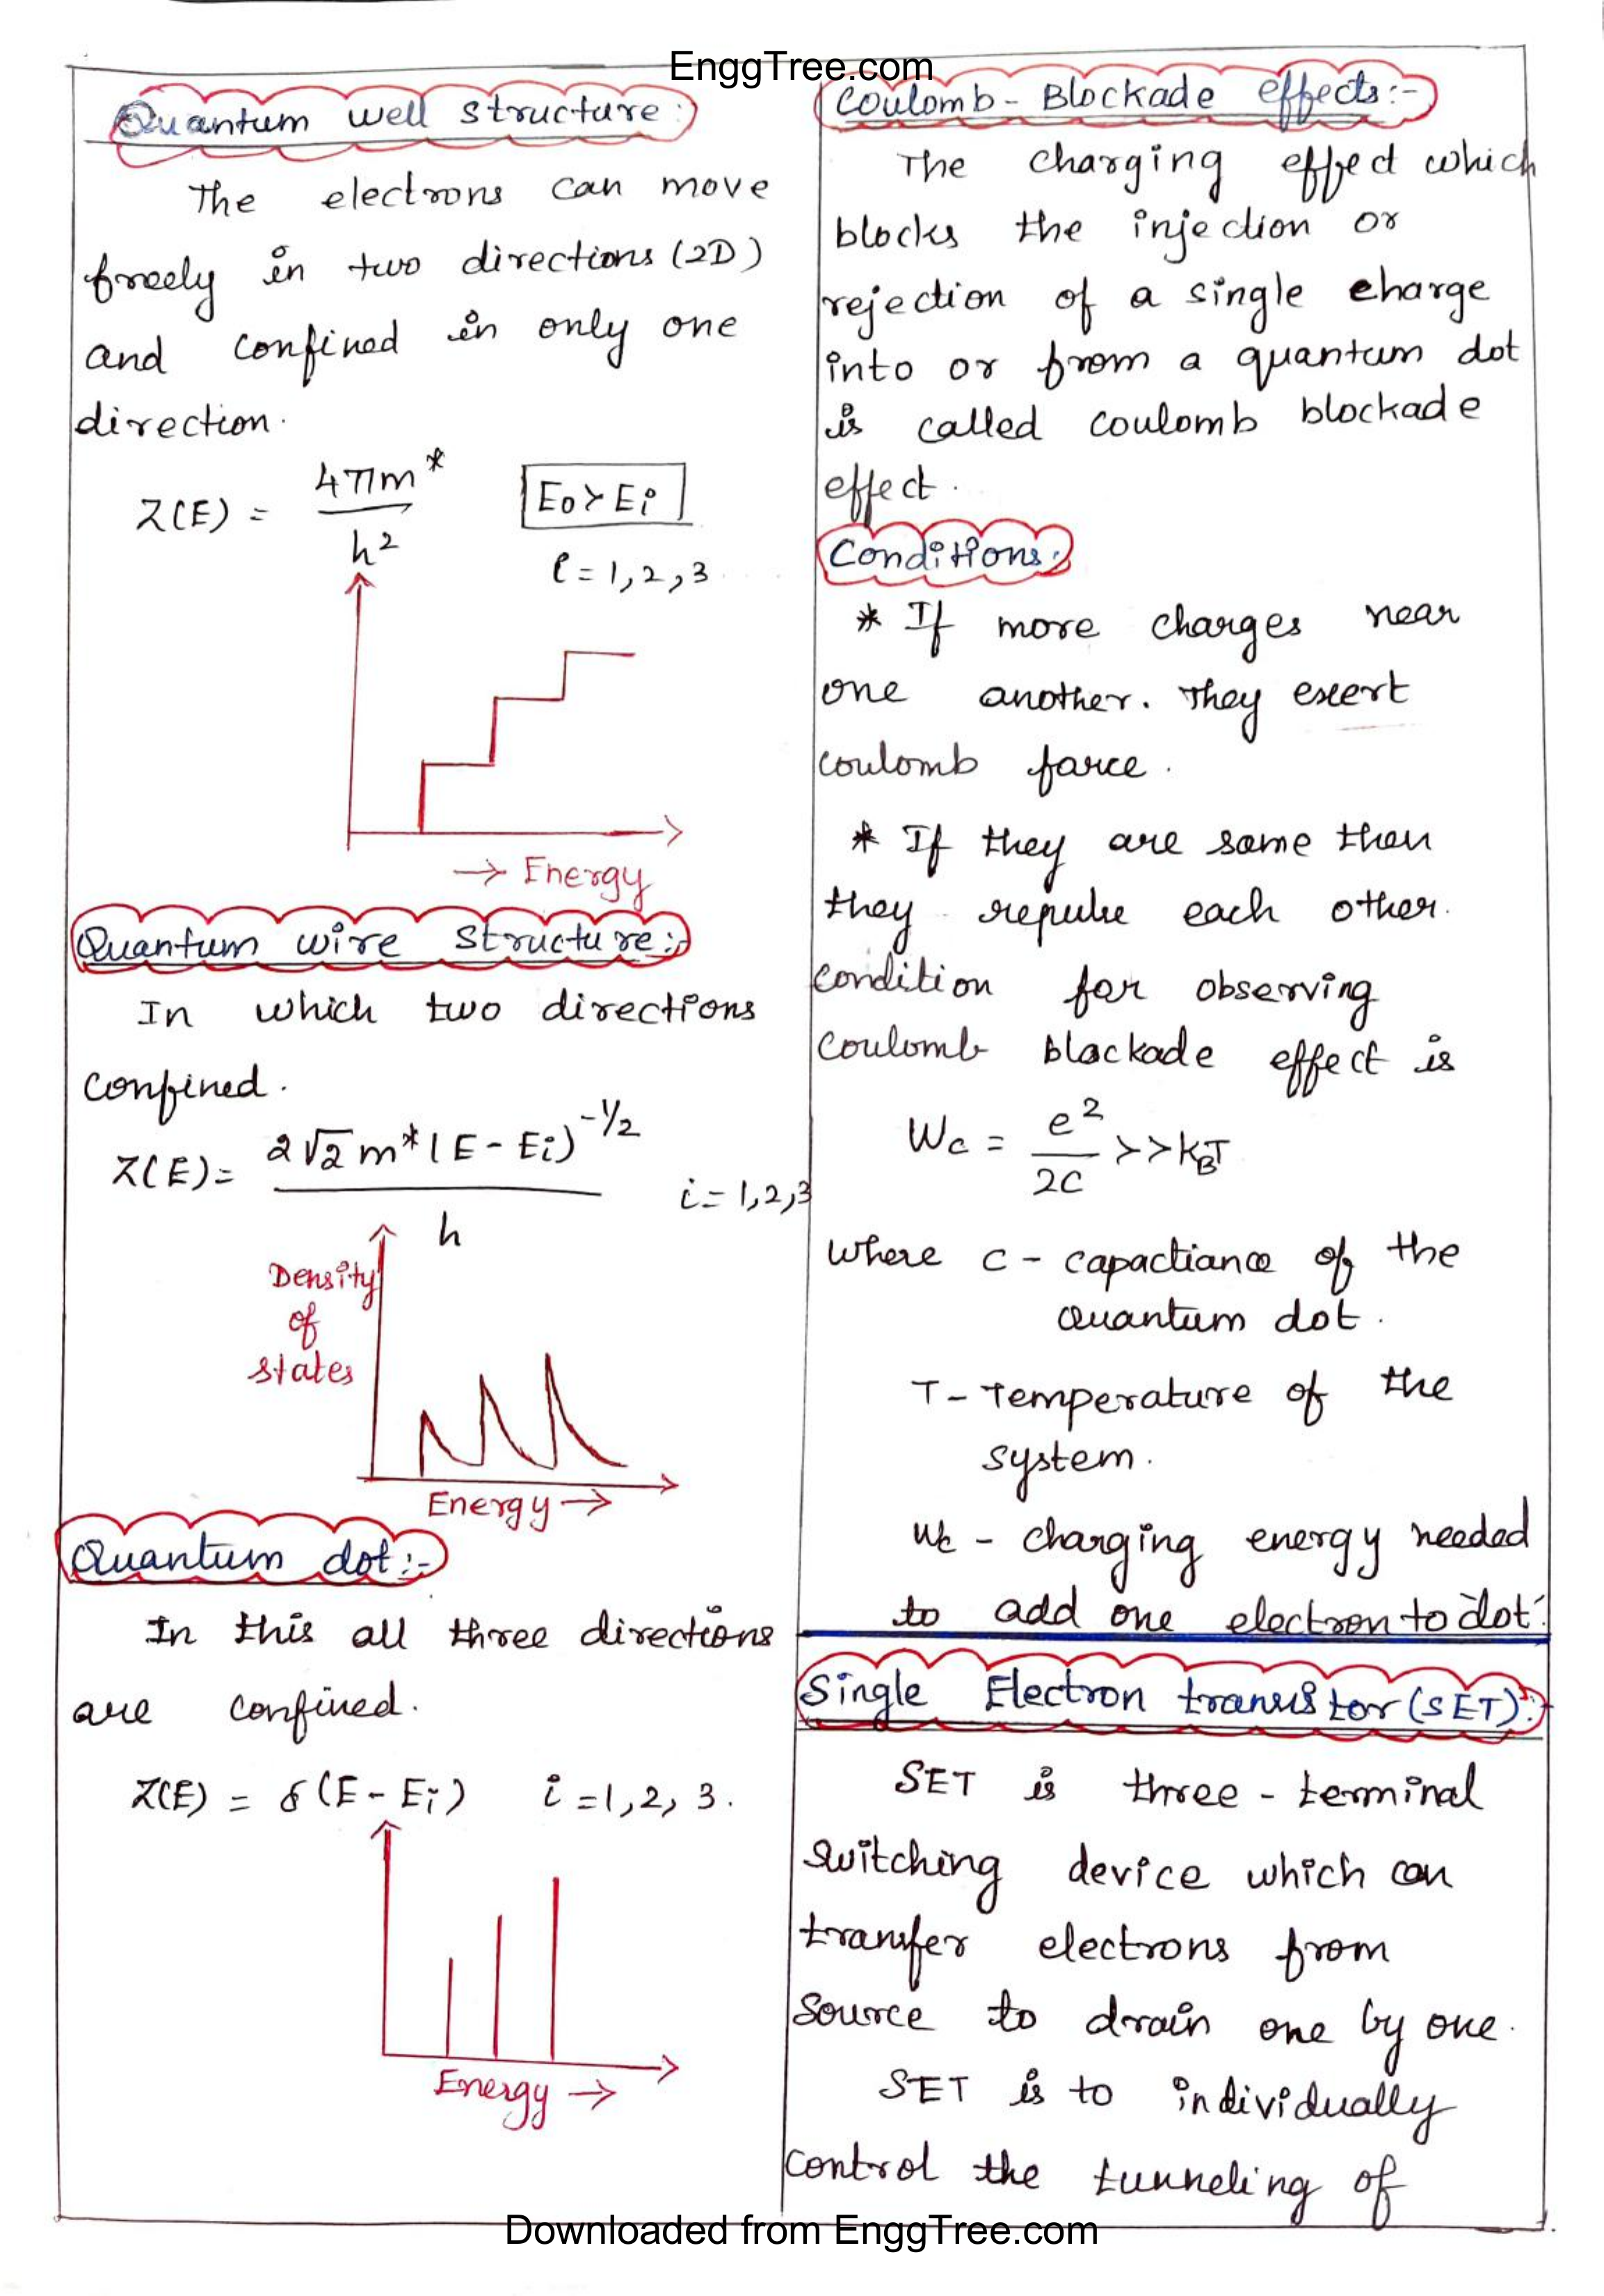 EnggTree.com
Quantum well structure:
The electrons can move
freely in two directions (2D)
and confined in only one
direction.
Z(E) = 4πm* / h²
E0 > Ei
i = 1, 2, 3
→ Energy
Quantum wire structure:-
In which two directions
confined.
Z(E) = 2√2 m* (E - Ei)^-1/2 / h
i = 1, 2, 3
Density
of
states
Energy →
Quantum dot:-
In this all three directions
are confined.
Z(E) = δ(E - Ei) i = 1, 2, 3.
Energy →
Coulomb - Blockade effects:-
The charging effect which
blocks the injection or
rejection of a single charge
into or from a quantum dot
is called coulomb blockade
effect.
Conditions:
* If more charges near
one another. They exert
coulomb force.
* If they are same then
they repulse each other.
condition for observing
coulomb blockade effect is
Wc = e² / 2C >> kBT
where C - capactiance of the
Quantum dot.
T - Temperature of the
system.
Wc - charging energy needed
to add one electron to dot.
Single Electron transistor (SET):-
SET is three - terminal
switching device which can
transfer electrons from
source to drain one by one.
SET is to individually
control the tunneling of
Downloaded from EnggTree.com